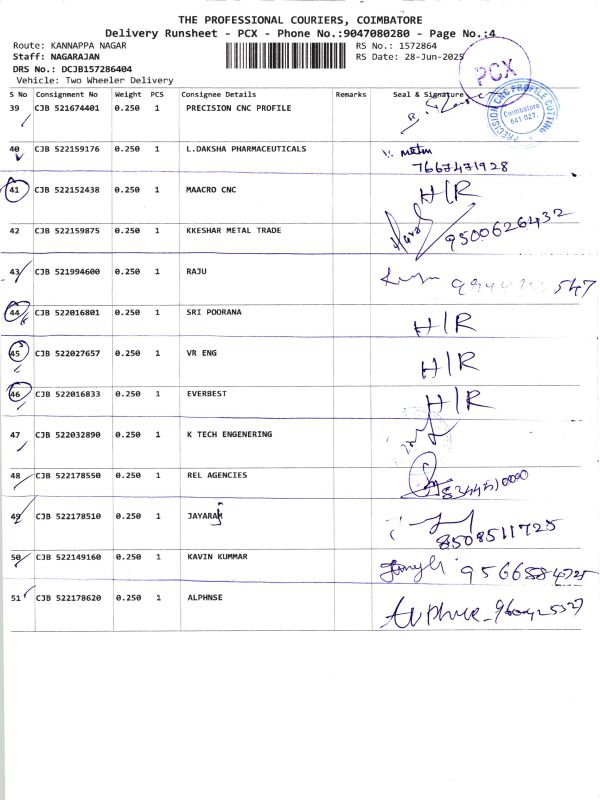 THE PROFESSIONAL COURIERS, COIMBATORE
Delivery Runsheet - PCX - Phone No.:9047080280 - Page No.:4
Route: KANNAPPA NAGAR RS No.: 1572864
Staff: NAGARAJAN RS Date: 28-Jun-2025
DRS No.: DCJB157286404
Vehicle: Two Wheeler Delivery
PCX
S No Consignment No Weight PCS Consignee Details Remarks Seal & Signature
39 CJB 521674401 0.250 1 PRECISION CNC PROFILE
PRECISION CNC PROFILE CUTTING
Coimbatore
641 027.
40 CJB 522159176 0.250 1 L.DAKSHA PHARMACEUTICALS
7667471928
41 CJB 522152438 0.250 1 MAACRO CNC H/R
42 CJB 522159875 0.250 1 KKESHAR METAL TRADE 9500626432
43 CJB 521994600 0.250 1 RAJU
44 CJB 522016801 0.250 1 SRI POORANA H/R
45 CJB 522027657 0.250 1 VR ENG H/R
46 CJB 522016833 0.250 1 EVERBEST H/R
47 CJB 522032890 0.250 1 K TECH ENGENERING
48 CJB 522178550 0.250 1 REL AGENCIES
49 CJB 522178510 0.250 1 JAYARAM 8508511725
50 CJB 522149160 0.250 1 KAVIN KUMMAR
51 CJB 522178620 0.250 1 ALPHNSE